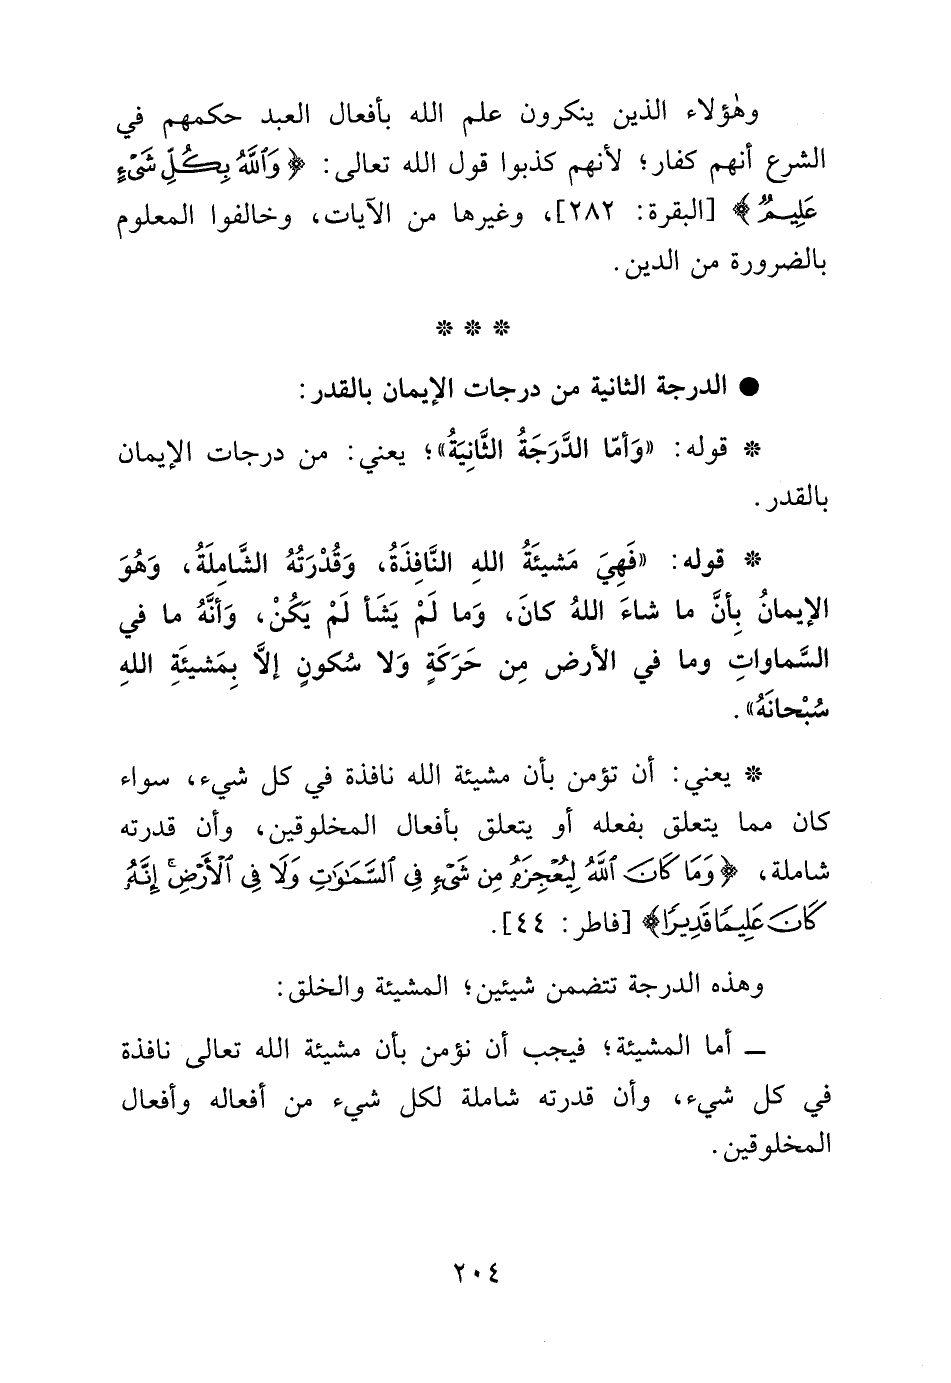 وهٰؤلاء الذين ينكرون علم الله بأفعال العبد حكمهم في
الشرع أنهم كفار؛ لأنهم كذبوا قول الله تعالى: ﴿وَٱللَّهُ بِكُلِّ شَىْءٍ
عَلِيمٌ﴾ [البقرة: ٢٨٢]، وغيرها من الآيات، وخالفوا المعلوم
بالضرورة من الدين.
* * *
● الدرجة الثانية من درجات الإيمان بالقدر:
* قوله: «وَأَمّا الدَّرَجَةُ الثَّانِيَةُ»؛ يعني: من درجات الإيمان
بالقدر.
* قوله: «فَهِيَ مَشيئَةُ اللهِ النَّافِذَةُ، وَقُدْرَتُهُ الشَّامِلَةُ، وَهُوَ
الإيمانُ بِأَنَّ ما شاءَ اللهُ كانَ، وَما لَمْ يَشَأ لَمْ يَكُنْ، وَأَنَّهُ ما في
السَّماواتِ وما في الأرضِ مِن حَرَكَةٍ وَلا سُكونٍ إلاَّ بِمَشيئَةِ اللهِ
سُبْحانَهُ».
* يعني: أن تؤمن بأن مشيئة الله نافذة في كل شيء، سواء
كان مما يتعلق بفعله أو يتعلق بأفعال المخلوقين، وأن قدرته
شاملة، ﴿وَمَا كَانَ ٱللَّهُ لِيُعْجِزَهُۥ مِن شَىْءٍ فِى ٱلسَّمَٰوَٰتِ وَلَا فِى ٱلْأَرْضِ ۚ إِنَّهُۥ
كَانَ عَلِيمًا قَدِيرًا﴾ [فاطر: ٤٤].
وهذه الدرجة تتضمن شيئين؛ المشيئة والخلق:
ـ أما المشيئة؛ فيجب أن نؤمن بأن مشيئة الله تعالى نافذة
في كل شيء، وأن قدرته شاملة لكل شيء من أفعاله وأفعال
المخلوقين.
٢٠٤